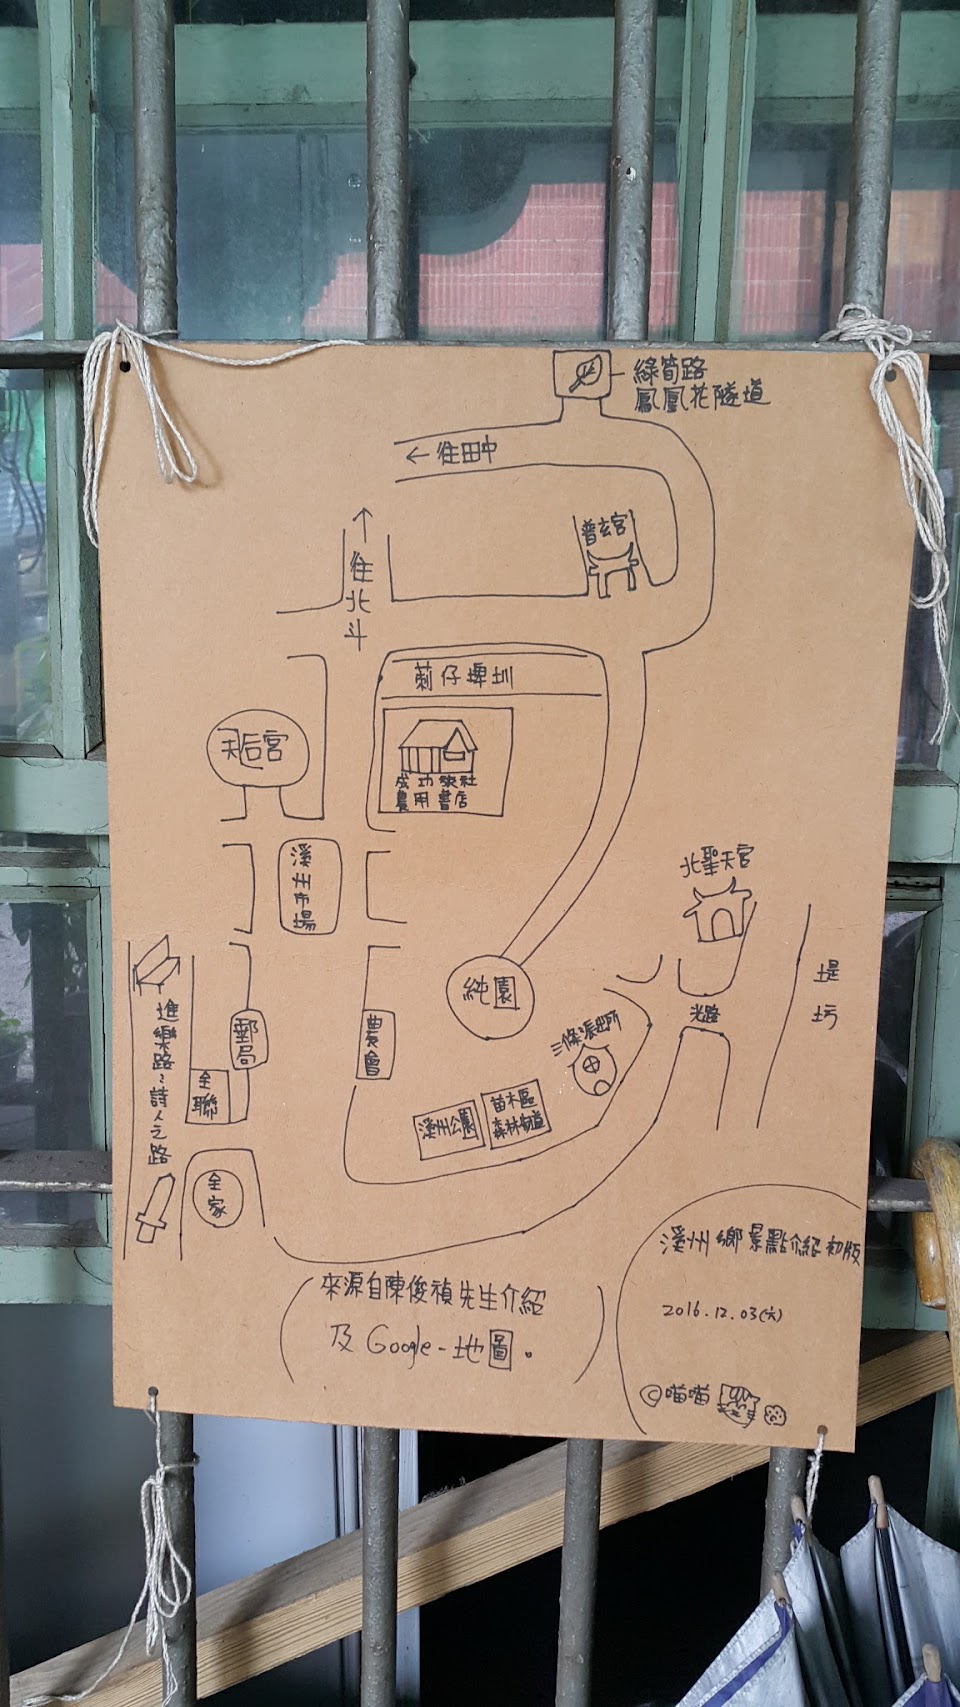 綠筍路
鳳凰花隧道
←往田中
普玄宮
往北斗
莿仔埤圳
天后宮
成功旅社
農用書店
溪州市場
北聖天宮
純園
堤坊
光路
三條派出所
進樂路:詩人之路
郵局
農會
全聯
溪州公園
苗木區
森林步道
全家
溪州鄉景點介紹初版
來源自陳俊禎先生介紹
及Google-地圖。
2016.12.03(六)
©喵喵